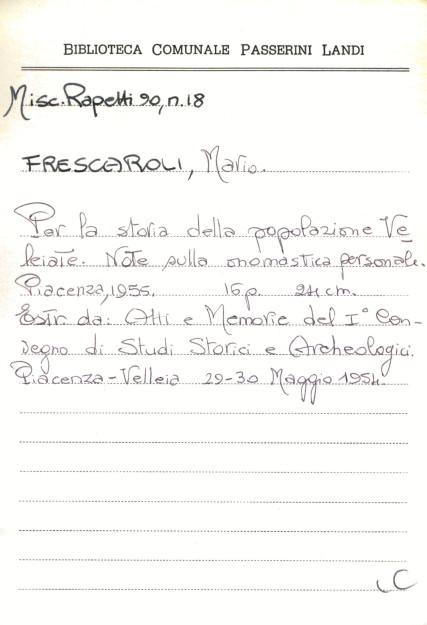 BIBLIOTECA COMUNALE PASSERINI LANDI
Misc. Rapetti 90, n. 18
FRESCAROLI, Mario.
Per la storia della popolazione Ve
leiate. Note sulla onomastica personale.
Piacenza, 1955. 16 p. 24 cm.
Estr. da: Atti e Memorie del I° Con-
vegno di Studi Storici e Archeologici.
Piacenza-Velleia 29-30 Maggio 1954.